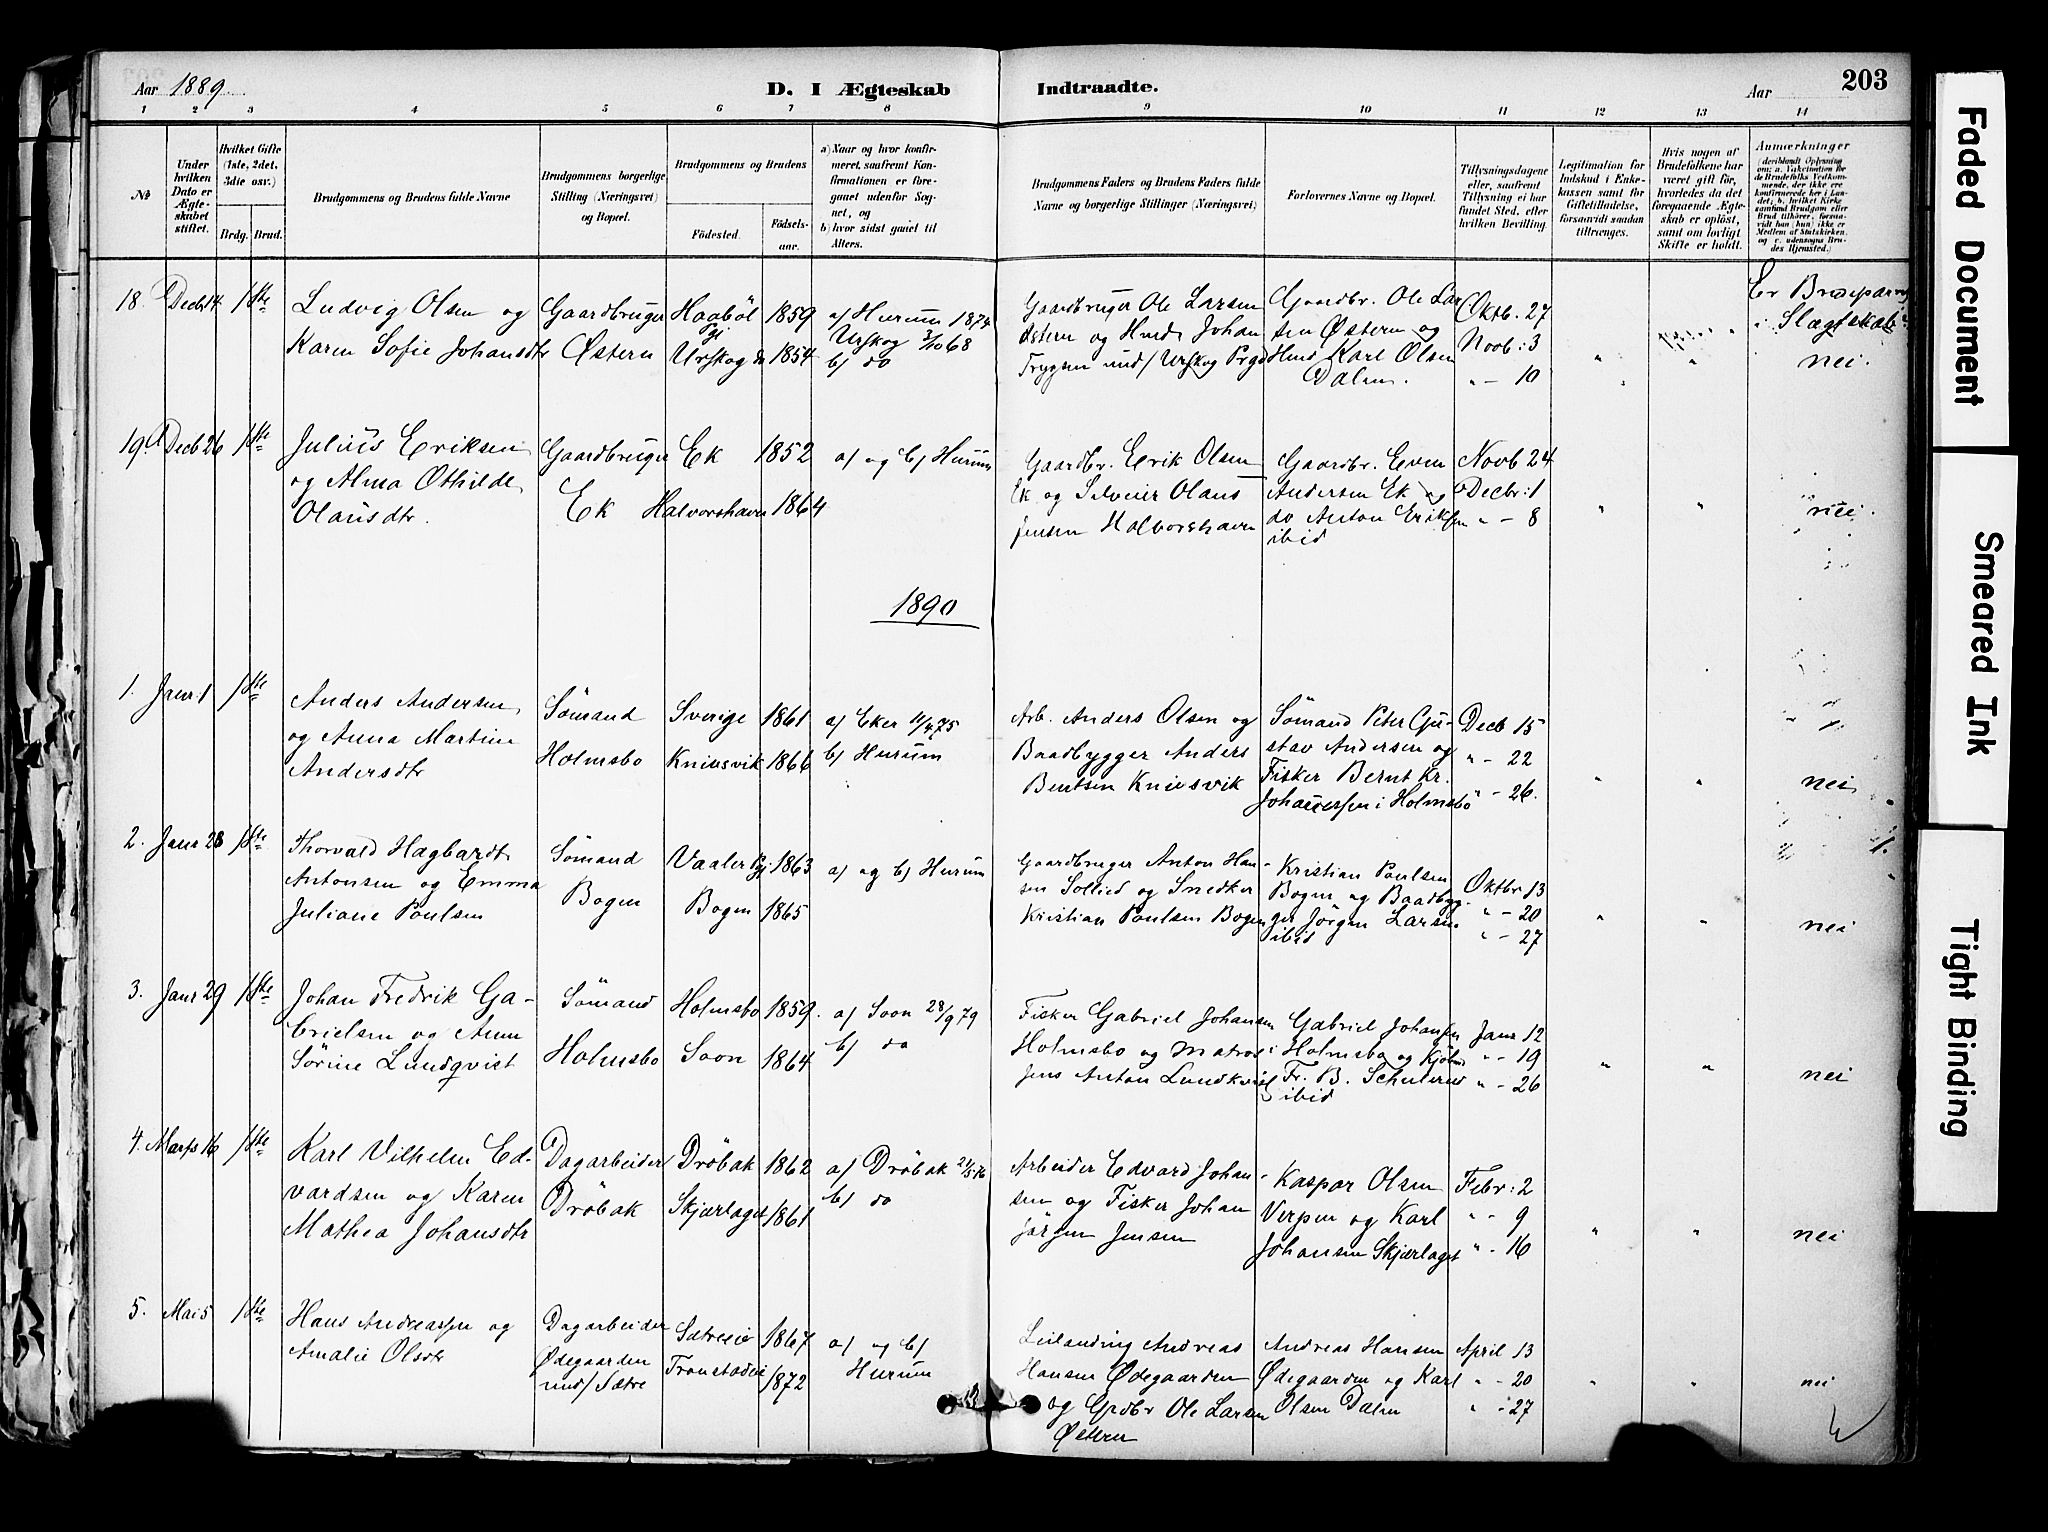 Aar 1889.
D. I Ægteskab Indtraadte.
Aar
203
1 2 3 4 5 6 7 8 9 10 11 12 13 14
№
Under hvilken Dato er Ægteskabet stiftet.
Hvilket Gifte (1ste, 2det, 3die osv.)
Brdg. Brud.
Brudgommens og Brudens fulde Navne
Brudgommens borgerlige Stilling (Næringsvei) og Bopæl.
Brudgommens og Brudens
Fødested.
Fødselsaar.
a) Naar og hvor konfirmeret, saafremt Konfirmationen er foregaaet udenfor Sognet, og
b) hvor sidst gaaet til Alters.
Brudgommens Faders og Brudens Faders fulde Navne og borgerlige Stillinger (Næringsvei)
Forlovernes Navne og Bopæl.
Tillysningsdagene eller, saafremt Tillysning ei har fundet Sted, efter hvilken Bevilling.
Legitimation for Indskud i Enkekassen samt for Giftetilladelse, forsaavidt saadan tiltrænges.
Hvis nogen af Brudefolkene har været gift før, hvorledes da det foregaaende Ægteskab er opløst, samt om lovligt Skifte er holdt.
Anmærkninger
18. Decb 14. 1ste
Ludvig Olsen og
Karen Sofie Johansdtr
Gaardbruger
Østern
Haabøl
Urskog
1859
1854
a) Hurum 1874
Urskog 3/10 68
b) do
Gaardbruger Ole Larsen
Østern og Husd. Johan
Trygsen und/ Urskog Prgd
Gaardbr. Ole Larsen Østern og
Husd Karl Olsen
Dalen.
Oktb. 27
Novb: 3
" - 10
Er Brudeparret
i Slægtskab?
nei.
19. Decb 26 1ste
Julius Eriksen
og Alma Othilde
Olausdtr.
Gaardbruger
Ek
Ek
Halvorshavn
1852
1864
a) og b) Hurum
Gaardbr. Erik Olsen
Ek og Selveier Olaus
Jensen Halvorshavn
Gaardbr. Even
Andersen Ek og
do Anton Eriksen
ibid
Novb 24
Decbr: 1
" - 8
nei.
1890
1. Janr. 1 1ste
Anders Andersen
og Anna Martine
Andersdtr
Sömand
Holmsbo
Sverige
Knivsvik
1861
1866
a) Eker 11/4 75
b) Hurum
Arb. Anders Olsen og
Baadbygger Anders
Bentsen Knivsvik
Sömand Peter Gustav Andersen og
Fisker Bernt Kr.
Johannessen i Holmsbö
Decb 15
" - 22
" - 26.
nei
2. Janr 28 1ste
Thorvald Hagbardt
Antonsen og Emma
Juliane Poulsen
Sömand
Bogen
Vaaler Pgj.
Bogen
1863
1865
a) og b) Hurum
Gaardbruger Anton Hansen Sollied og Snedker
Kristian Poulsen Bogen
Kristian Poulsen
Bogen og Baadbygger Jörgen Larsen
ibid
Oktbr 13
" - 20
" - 27
nei
3. Janr 29 1ste
Johan Fredrik Gabrielsen og Anna
Sörine Lundqvist
Sömand
Holmsbo
Holmsbo
Soon
1859.
1864
a) Soon 28/9 79
b) do
Fisker Gabriel Johansen
Holmsbo og Matros
Jens Anton Lundkvist
Gabriel Johansen
i Holmsbo og Kjöbmd
Fr. B. Schulerud
ibid
Janr 12
" - 19
" - 26
nei
4. Marts 16 1ste
Karl Vilhelm Edvardsen og Karen
Mathea Johansdtr
Dagarbeider
Dröbak
Dröbak
Skjærlaget
1862
1861
a) Dröbak
b) do
Arbeider Edvard Johansen og Fisker Johan
Jörgen Jensen
Kaspar Olsen
Verpen og Karl
Johansen Skjærlaget
Febr: 2
" - 9
" - 16
nei
5. Mai 5 1ste
Hans Andreassen og
Amalie Olsdtr
Dagarbeider
Ødegaarden
und/ Sætre
Sætreeie
1867
1872
a) og b)
Hurum
Leilænding Andreas
Hansen Ødegaarden
og Grdbr Ole Larsen
Østern
Andreas Hansen
Ødegaarden og Karl
Olsen Dalen
April 13
" - 20
" - 27
nei
Faded Document
Smeared Ink
Tight Binding